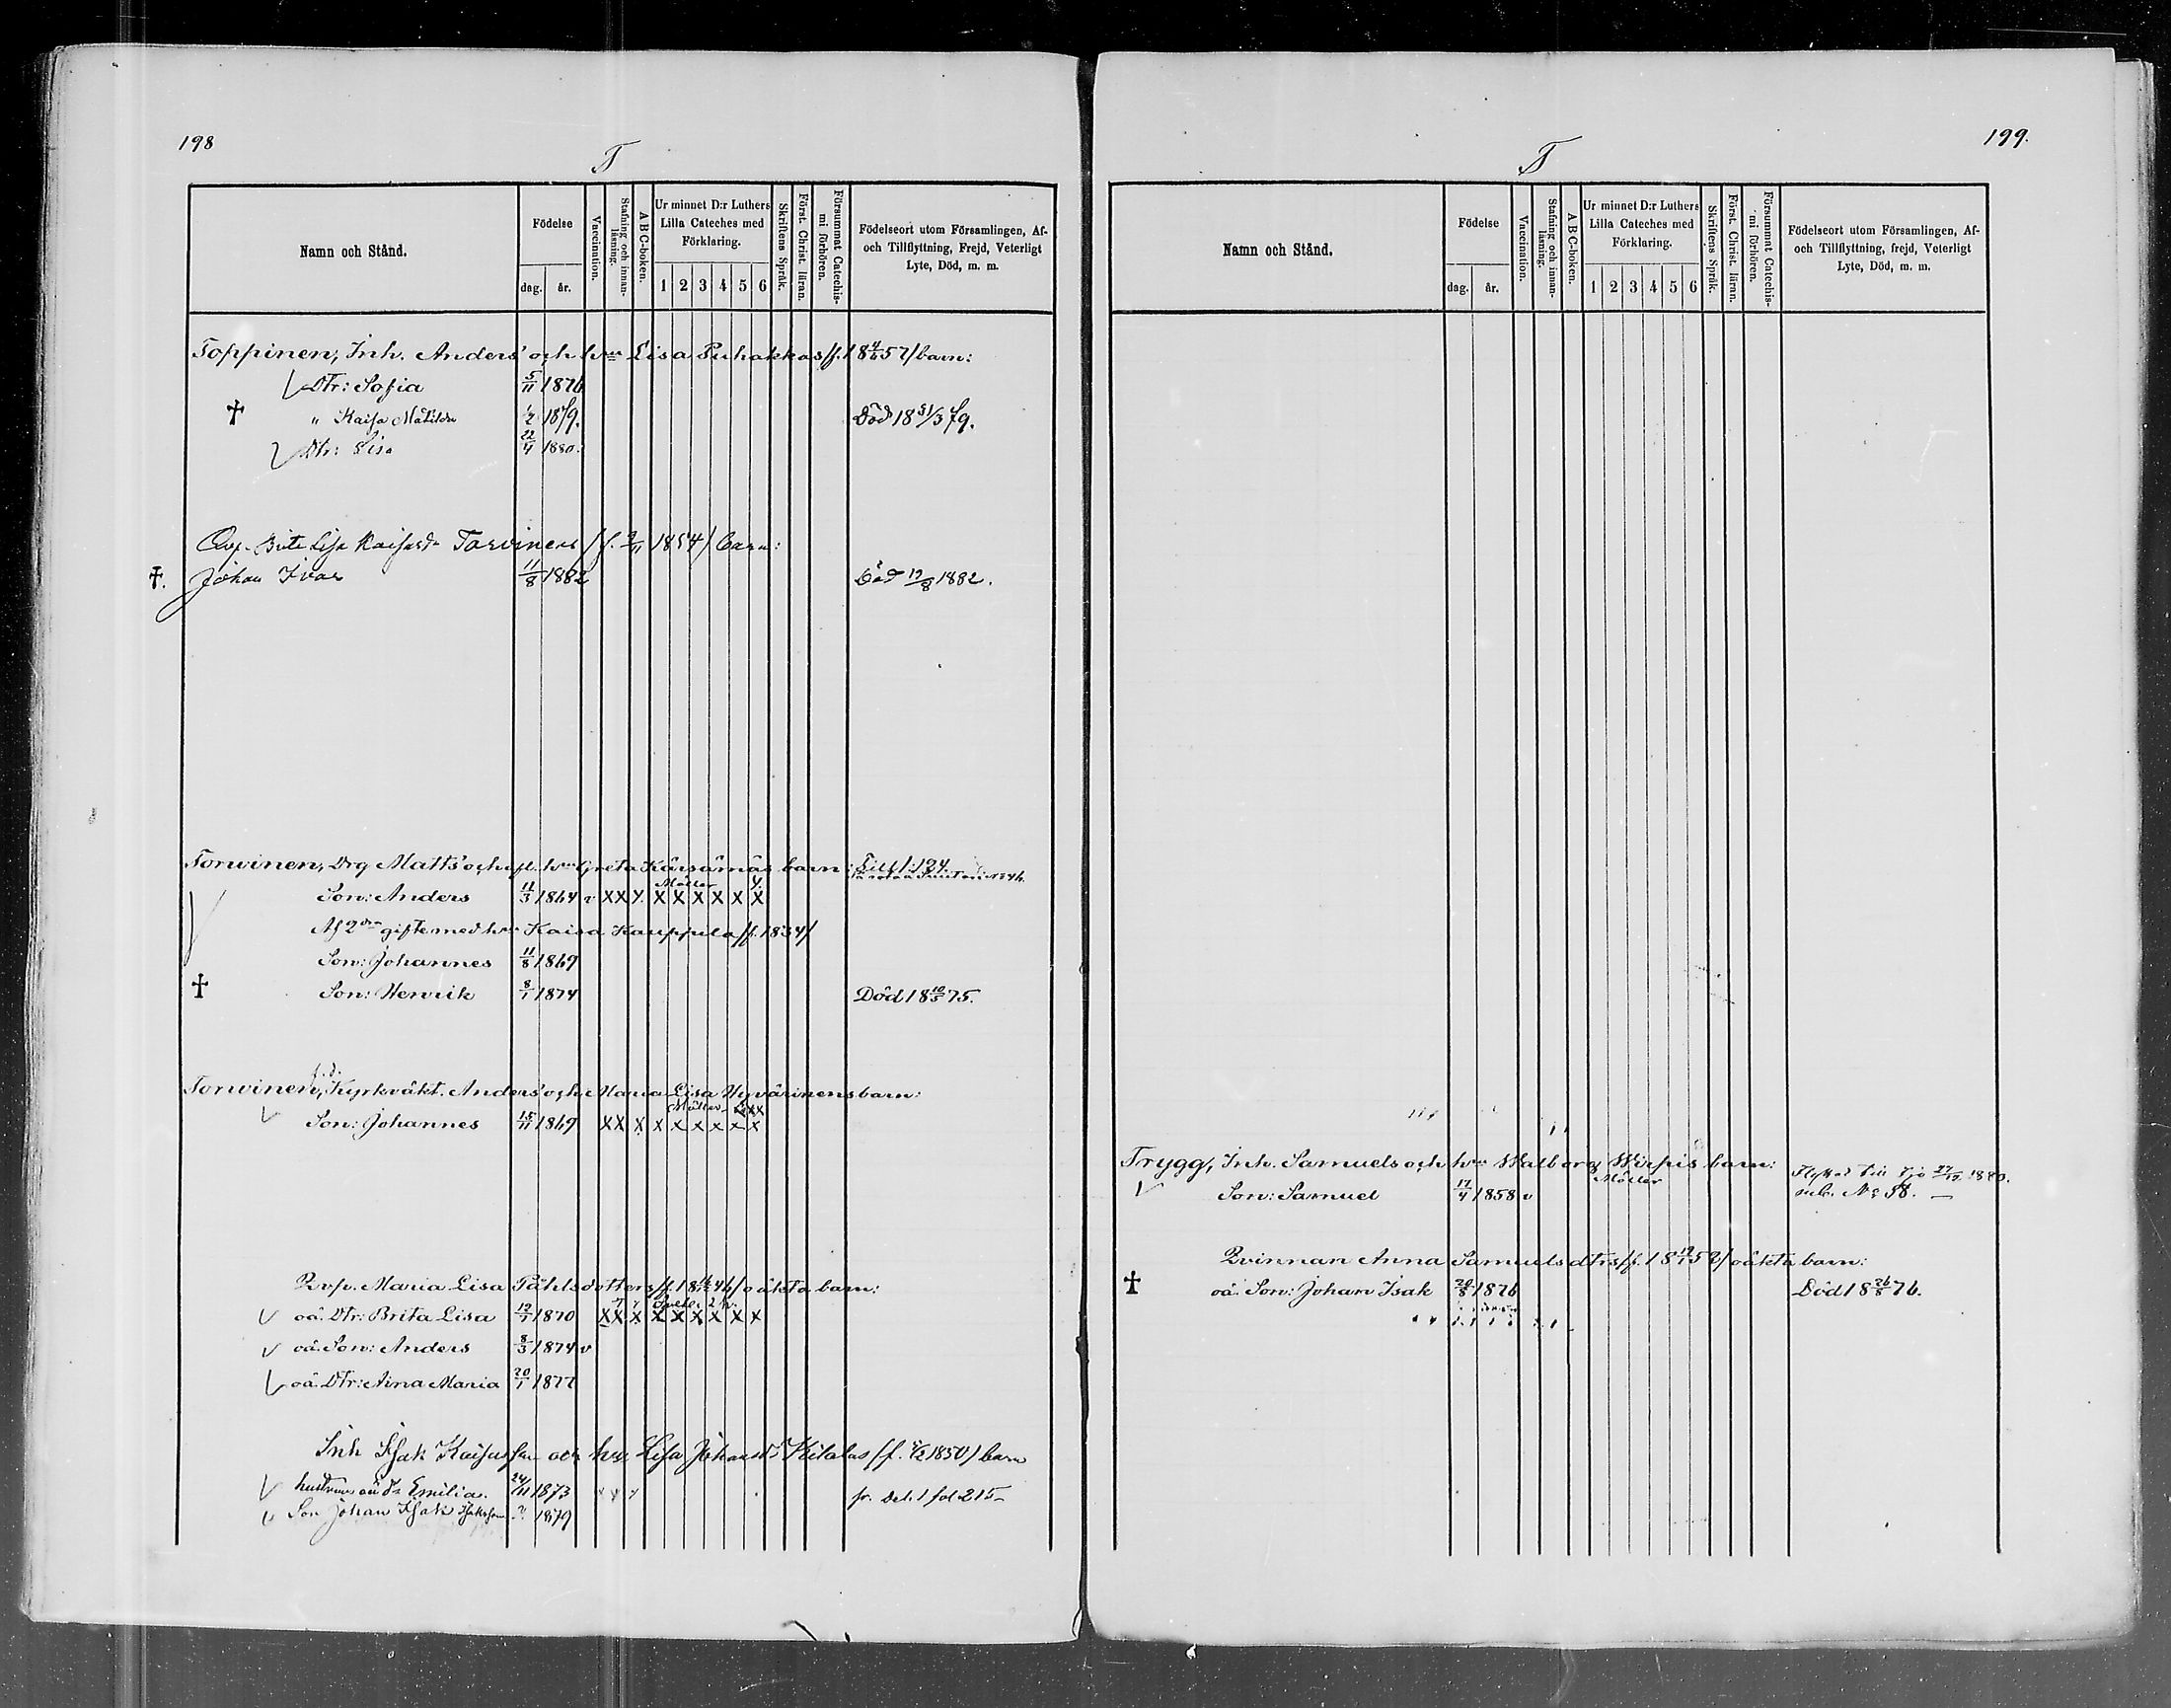 198
T
Namn och Stånd.
Födelse
dag.
år.
Vaccination.
Stafning och innan-läsning.
A B C-boken.
Ur minnet D:r Luthers
Lilla Cateches med
Förklaring.
1 2 3 4 5 6
Skriftens Språk.
Först. Christ. läran.
Försummat Catechis-mi förhören.
Födelseort utom Församlingen, Af-
och Tillflyttning, Frejd, Veterligt
Lyte, Död, m. m.
Toppinen, Inh. Anders' och hu Lisa Puhakkas /f. 18 4/6 57/ barn:
Dtr: Sofia 5/11 1876
† " Kaisa Matilda 1/2 1879. Död 18 31/3 79.
Dtr: Lisa 22/4 1880.
Qvp. Brita Lisa Torvinens 1854/ barn:
†. Johan Ivar 11/8 1882 Död 19/8 1882.
Torvinen, Drg Matts' och hu Greta Kärsämäs barn: 1:124.
Möller
Son: Anders 11/3 1864 v X X X X X X X X X
Af 2dra gifte med hu Kaisa Kauppila /f. 1834/
Son: Johannes 11/8 1869
† Son: Henrik 8/1 1874 Död 18 10/5 75.
f. d.
Torvinen, Kyrkväkt. Anders' och Maria Lisa Hyvärinens barn:
Möller
Son: Johannes 15/11 1869 X X X X X X X X X
Qvp. Maria Lisa Påhlsdotters /f. 18 46/ oäkta barn:
oä. Dtr: Brita Lisa 12/7 1870 X X X X X X X X X
oä. Son: Anders 8/3 1874 v
oä. Dtr: Aina Maria 20/1 1877
Inh Isak och hu Lisa Johansdr 1850/ barn
oä dr Emilia. 24/11 1873 fr. Del. 1 fol. 215
Son Johan Isak Isaksson ? 1879
199.
T
Namn och Stånd.
Födelse
dag.
år.
Vaccination.
Stafning och innan-läsning.
A B C-boken.
Ur minnet D:r Luthers
Lilla Cateches med
Förklaring.
1 2 3 4 5 6
Skriftens Språk.
Först. Christ. läran.
Försummat Catechis-mi förhören.
Födelseort utom Församlingen, Af-
och Tillflyttning, frejd, Veterligt
Lyte, Död, m. m.
Trygg, Inh. Samuels och hu Walborg Wirpis barn:
Möller
Flyttad till Ijo 27/12 1880.
Son: Samuel 17/4 1858 v sub. No 58. —
Qvinnan Anna Samuelsdtrs /f. 18 52/ oäkta barn:
† oä. Son: Johan Isak 20/8 1876 Död 18 26/8 76.